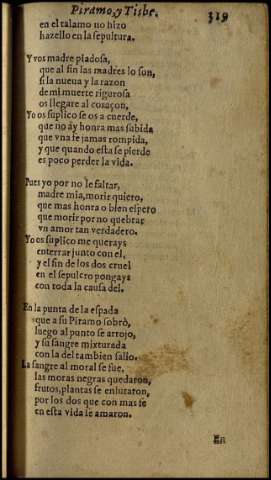 Piramo, y Tisbe. 319
en el talamo no hizo
hazello en la sepultura.
Y vos madre piadosa,
que al fin las madres lo son,
si la nueua y la razon
de mi muerte rigurosa
os llegare al coraçon,
Yo os suplico se os a cuerde,
que no áy honra mas subida
que vna fe jamas rompida,
y que quando esta se pierde
es poco perder la vida.
Pues yo por no le faltar,
madre mia, morir quiero,
que mas honra o bien espero
que morir por no quebrar
vn amor tan verdadero.
Yo os suplico me querays
enterrar junto con el,
y el fin de los dos cruel
en el sepulcro pongays
con toda la causa del.
En la punta de la espada
que a su Piramo sobrò,
luego al punto se arrojo,
y su sangre mixturada
con la del tambien salio.
La sangre al moral se fue,
las moras negras quedaron,
frutos, plantas se enlutaron,
por los dos que con mas fe
en esta vida se amaron.